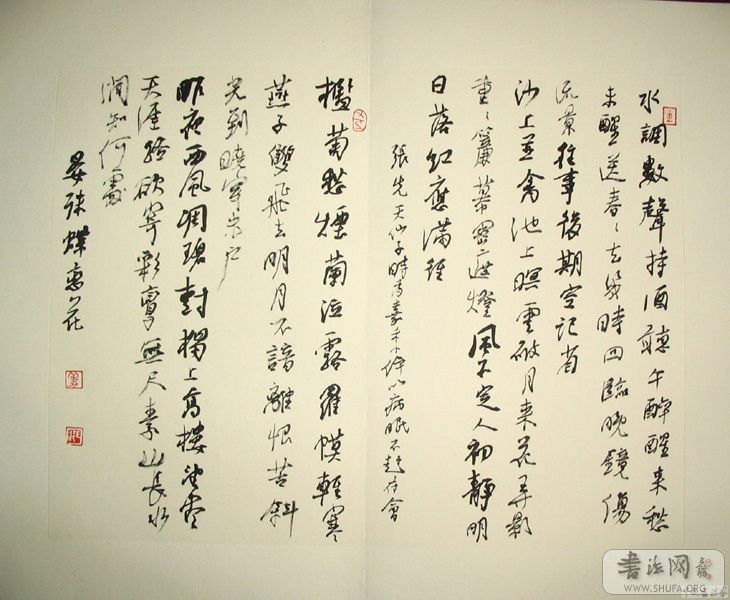 水調數聲持酒聽午醉醒來愁
未醒送春〻去幾時回臨晚鏡傷
流景往事後期空記省
沙上並禽池上暝雲破月來花弄影
重〻簾幕密遮燈風不定人初靜明
日落紅應滿徑
張先天仙子時為嘉禾小倅以病眠不赴府會
檻菊愁煙蘭泣露羅幙輕寒
燕子雙飛去明月不諳離恨苦斜
光到曉穿朱户
昨夜西風凋碧樹獨上高樓望盡
天涯路欲寄彩箋無尺素山長水
濶知何處
晏殊蝶戀花
書法网
WWW.SHUFA.ORG